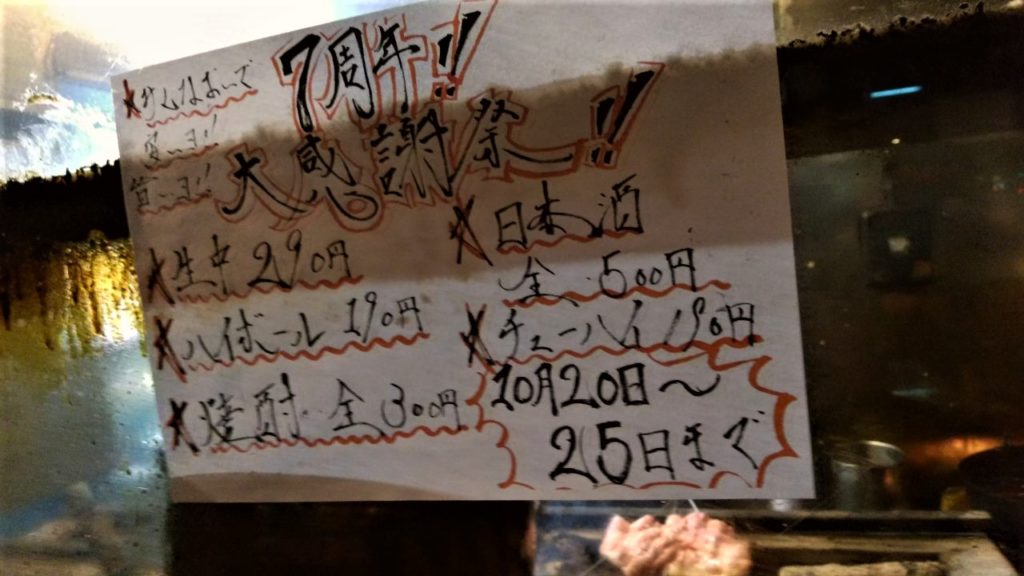 7周年!!
大感謝祭ー!!
生中 290円
ハイボール 190円
焼酎 全 300円
日本酒
全 500円
チューハイ 190円
10月20日〜
25日まで